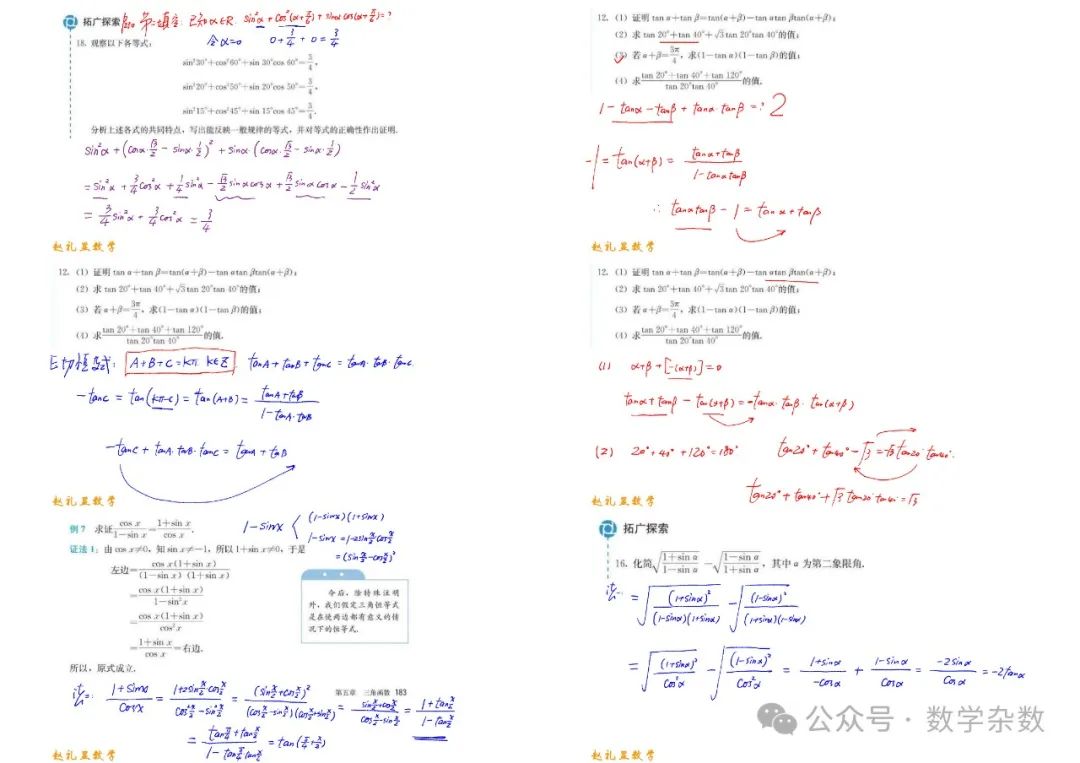 拓广探索
已知α∈R. sin²α+cos²(α+π/6)+sinα cos(α+π/6)=?
18. 观察以下各等式:
令α=0 0+3/4+0=3/4
sin²30°+cos²60°+sin 30°cos 60°=3/4,
sin²20°+cos²50°+sin 20°cos 50°=3/4,
sin²15°+cos²45°+sin 15°cos 45°=3/4.
分析上述各式的共同特点,写出能反映一般规律的等式,并对等式的正确性作出证明.
sin²α+(cosα·√3/2-sinα·1/2)²+sinα·(cosα·√3/2-sinα·1/2)
=sin²α+3/4cos²α+1/4sin²α-√3/2sinαcosα+√3/2sinαcosα-1/2sin²α
=3/4sin²α+3/4cos²α=3/4
赵礼显数学
12. (1) 证明tan α+tan β=tan(α+β)-tan αtan βtan(α+β);
(2) 求tan 20°+tan 40°+√3tan 20°tan 40°的值;
(3) 若α+β=3π/4, 求(1-tan α)(1-tan β)的值;
(4) 求(tan 20°+tan 40°+tan 120°)/(tan 20°tan 40°)的值.
正切恒等式: A+B+C=kπ k∈Z tanA+tanB+tanC=tanA·tanB·tanC.
-tanC=tan(kπ-C)=tan(A+B)=(tanA+tanB)/(1-tanA·tanB)
-tanC+tanA·tanB·tanC=tanA+tanB
赵礼显数学
例7 求证cos x/(1-sin x)=(1+sin x)/cos x.
1-sinx
(1-sinx)(1+sinx)
1-sinx=1-2sin x/2 cos x/2
=(sin x/2-cos x/2)²
证法1:由cos x≠0,知sin x≠-1,所以1+sin x≠0,于是
左边=cos x(1+sin x)/((1-sin x)(1+sin x))
=cos x(1+sin x)/(1-sin²x)
=cos x(1+sin x)/cos²x
=(1+sin x)/cos x=右边.
所以,原式成立.
今后,除特殊注明
外,我们假定三角恒等式
是在使两边都有意义的情
况下的恒等式.
第五章 三角函数 183
(1+sinx)/cosx=(1+2sin x/2 cos x/2)/(cos² x/2-sin² x/2)=(sin x/2+cos x/2)²/((cos x/2-sin x/2)(cos x/2+sin x/2))=(sin x/2+cos x/2)/(cos x/2-sin x/2)=(1+tan x/2)/(1-tan x/2)
=(tan π/4+tan x/2)/(1-tan π/4 tan x/2)=tan(π/4+x/2)
赵礼显数学
12. (1) 证明tan α+tan β=tan(α+β)-tan αtan βtan(α+β);
(2) 求tan 20°+tan 40°+√3tan 20°tan 40°的值;
(3) 若α+β=3π/4, 求(1-tan α)(1-tan β)的值;
(4) 求(tan 20°+tan 40°+tan 120°)/(tan 20°tan 40°)的值.
1-tanα-tanβ+tanα·tanβ=? 2
-1=tan(α+β)=(tanα+tanβ)/(1-tanαtanβ)
∴ tanαtanβ-1=tanα+tanβ
赵礼显数学
12. (1) 证明tan α+tan β=tan(α+β)-tan αtan βtan(α+β);
(2) 求tan 20°+tan 40°+√3tan 20°tan 40°的值;
(3) 若α+β=3π/4, 求(1-tan α)(1-tan β)的值;
(4) 求(tan 20°+tan 40°+tan 120°)/(tan 20°tan 40°)的值.
(1) α+β+[-(α+β)]=0
tanα+tanβ-tan(α+β)=-tanα·tanβ·tan(α+β)
(2) 20°+40°+120°=180° tan20°+tan40°-√3=-√3tan20°·tan40°.
tan20°+tan40°+√3tan20°tan40°=√3
赵礼显数学
拓广探索
16. 化简√((1+sin α)/(1-sin α))-√((1-sin α)/(1+sin α)),其中α为第二象限角.
=√((1+sinα)²/((1-sinα)(1+sinα)))-√((1-sinα)²/((1+sinα)(1-sinα)))
=√((1+sinα)²/cos²α)-√((1-sinα)²/cos²α)=(1+sinα)/(-cosα)+(1-sinα)/cosα=-2sinα/cosα=-2tanα
公众号·数学杂数
赵礼显数学